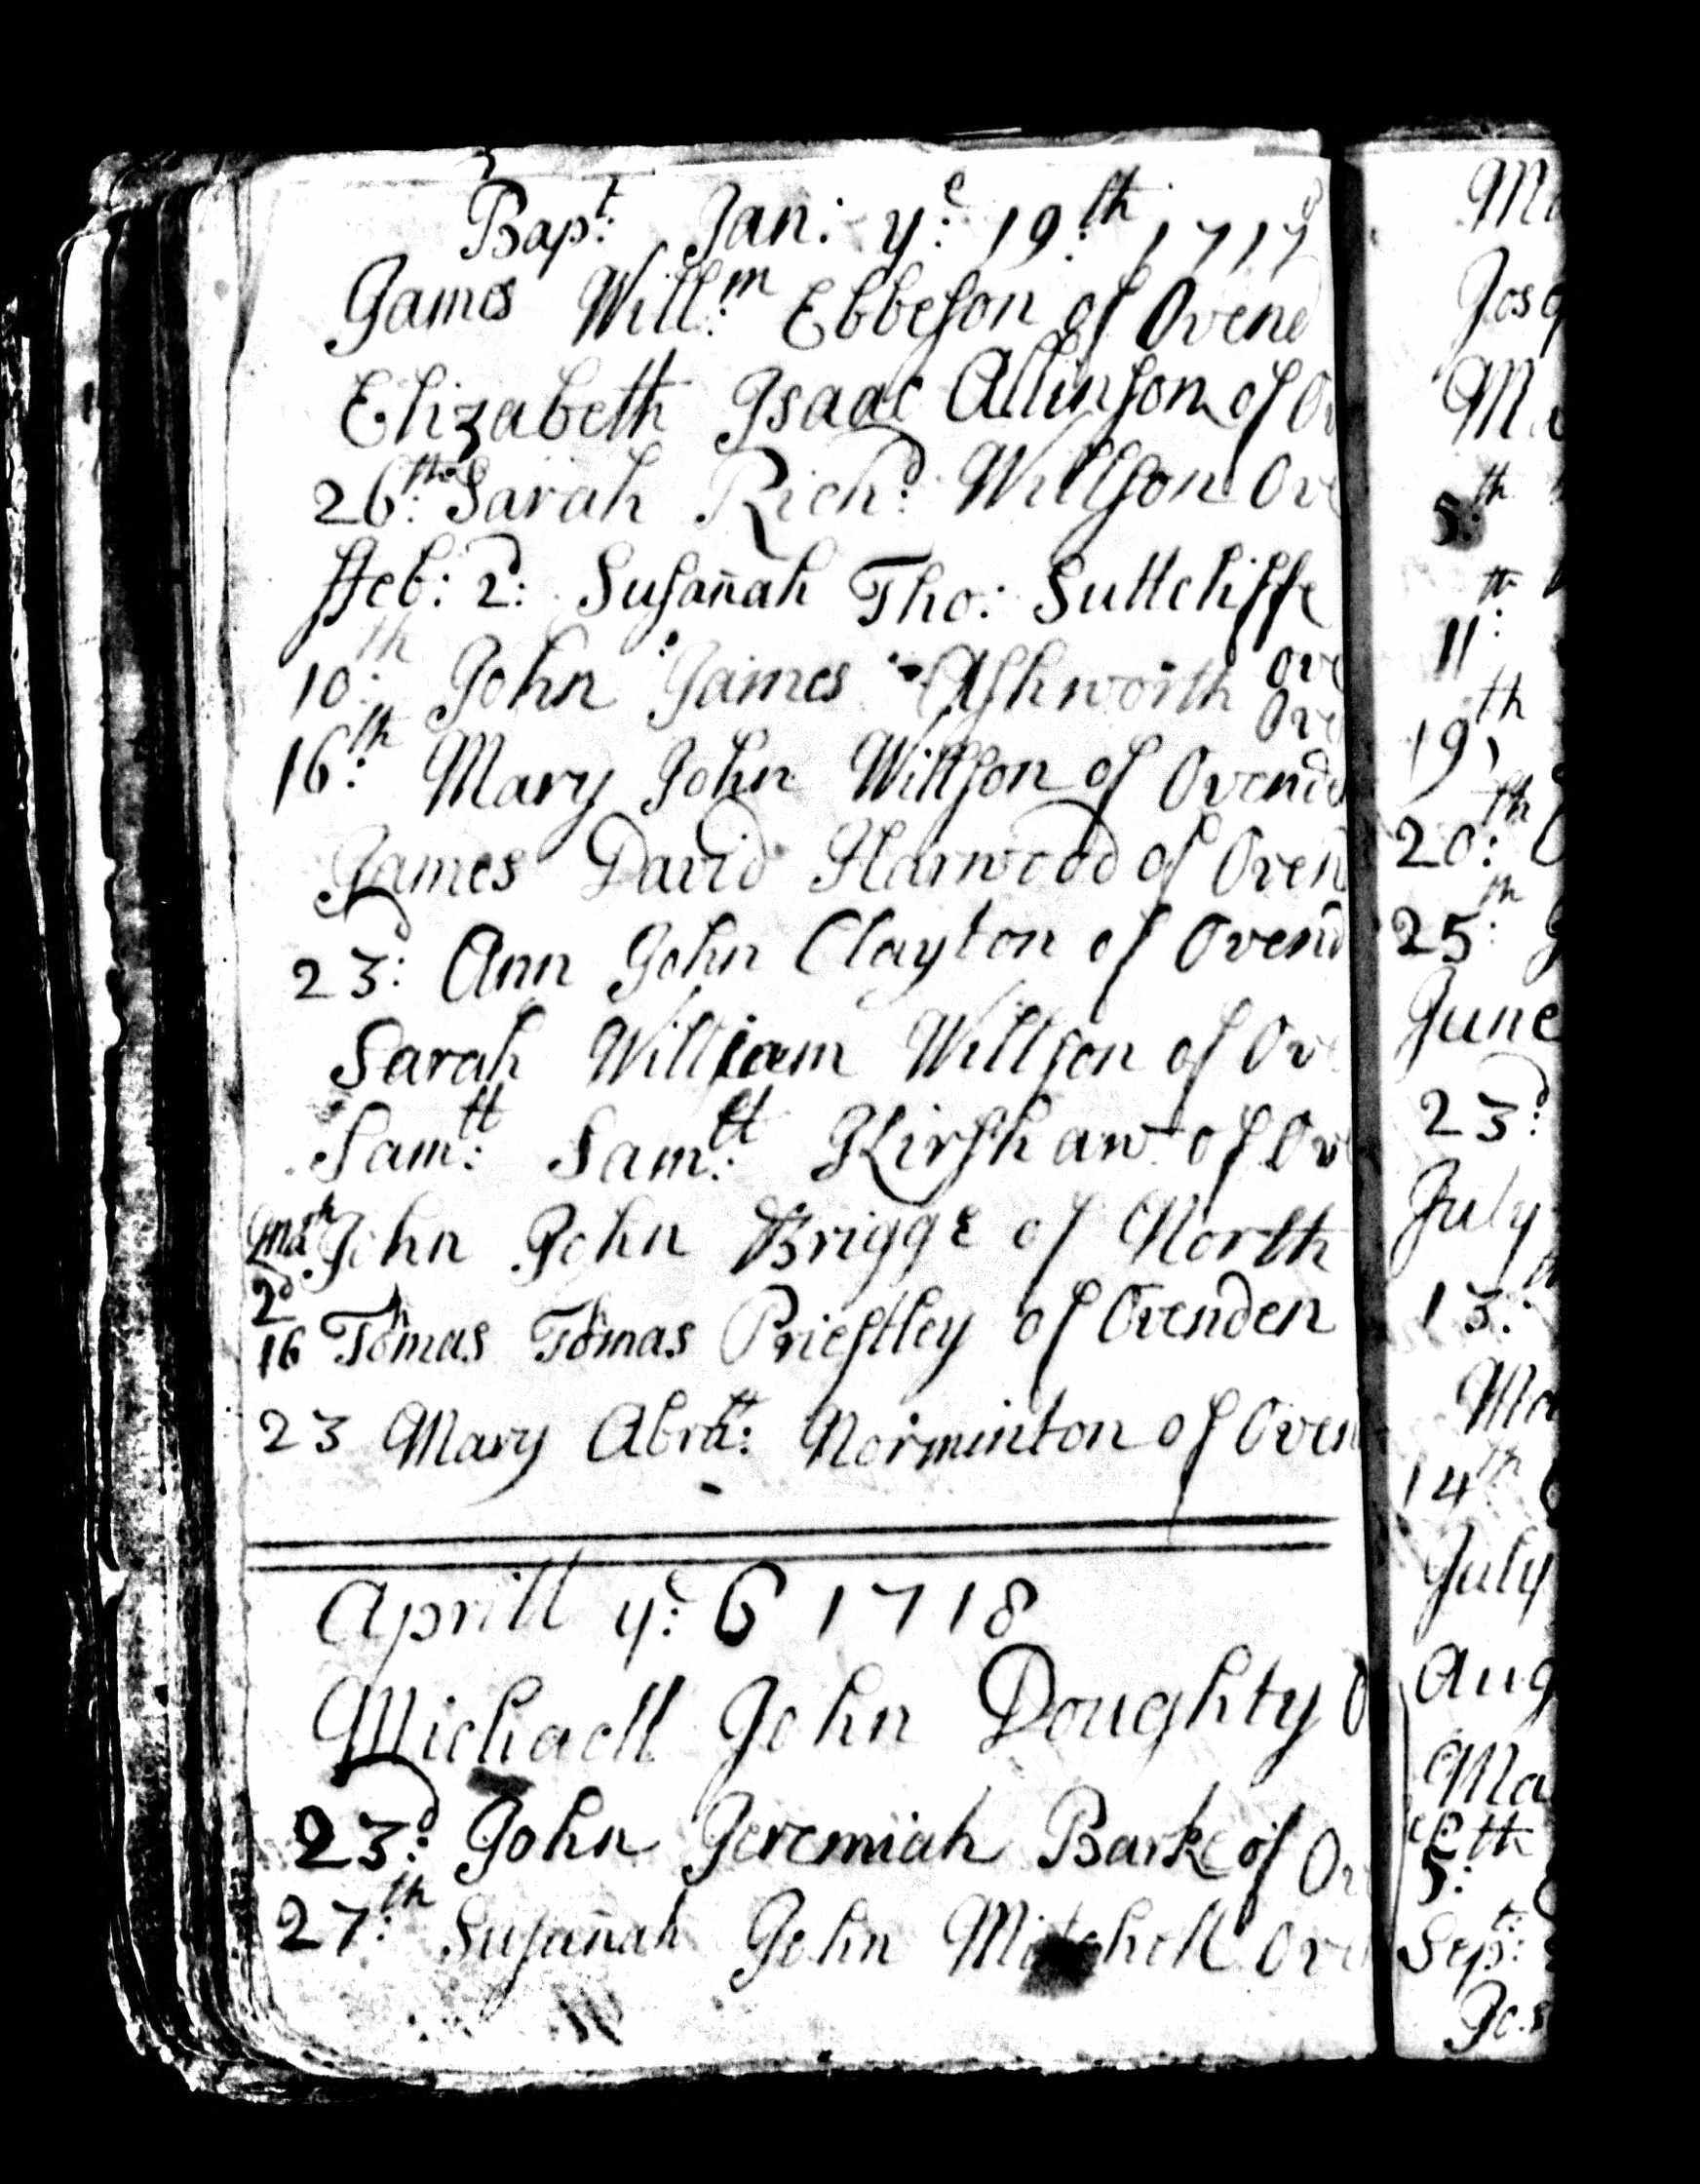 Bapt: Jan: ye: 19:th 1717/8
James Will:m Ebbeson of Ovend
Elizabeth Isaac Allinson of Ov
26:th Sarah Rich:d Willson Ove
ffeb: 2:d Susan̄ah Tho: Suttcliffe
Ove
10:th John James Ashworth
Ove
16:th Mary John Willson of Ovende
James David Harwood of Oven
23:d Ann John Clayton of Ovend
Sarah William Willson of Ove
Sam:ll Sam:ll Kirshaw of Ov
John John Briggs of North
2d
16 Tho̊mas Tho̊mas Priestley of Ovenden
23 Mary Abra: Norminton of Oven
Aprill ye: 6 1718
Michaell John Doughty O
23:d John Jeremiah Barke of Ov
27:th Susan̄ah John Mitchell Ove
Ma
Jos
Ma
5:th
11:th
19th
20:th
25:th
June
23:d
July
13:th
Ma
14th
July
Aug
Ma
5:th
Sept:
Jos